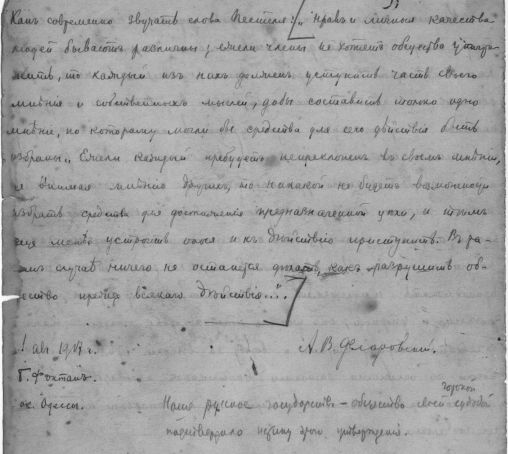 Какъ современно звучатъ слова Пестеля: „нравъ и личныя качества
людей бываютъ различны; ежели члены не хотятъ общество
то каждый изъ нихъ долженъ уступить часть своего
мнѣнія и собственныхъ мыслей, дабы составить только одно
мнѣніе, по которому могли бы средства для сего дѣйствія быть
избраны. Ежели каждый пребудетъ непреклоненъ въ своемъ мнѣніи,
не внимая мнѣнію другихъ, то никакой не будетъ возможности
избрать средства для достиженія предназначенной цѣли, и тѣмъ
еще менѣе устроить оныя и къ дѣйствію приступить. Въ та-
случаѣ ничего не останется дѣлать, какъ разрушить об-
щество прежде всякаго дѣйствія..."
1 авг 1917 г. А. В. Флоровскій.
Г. Фонтанъ.
ок. Одессы. Наше русское государство – общество своей горькой судьбой
подтвердило истину этого утвержденія.